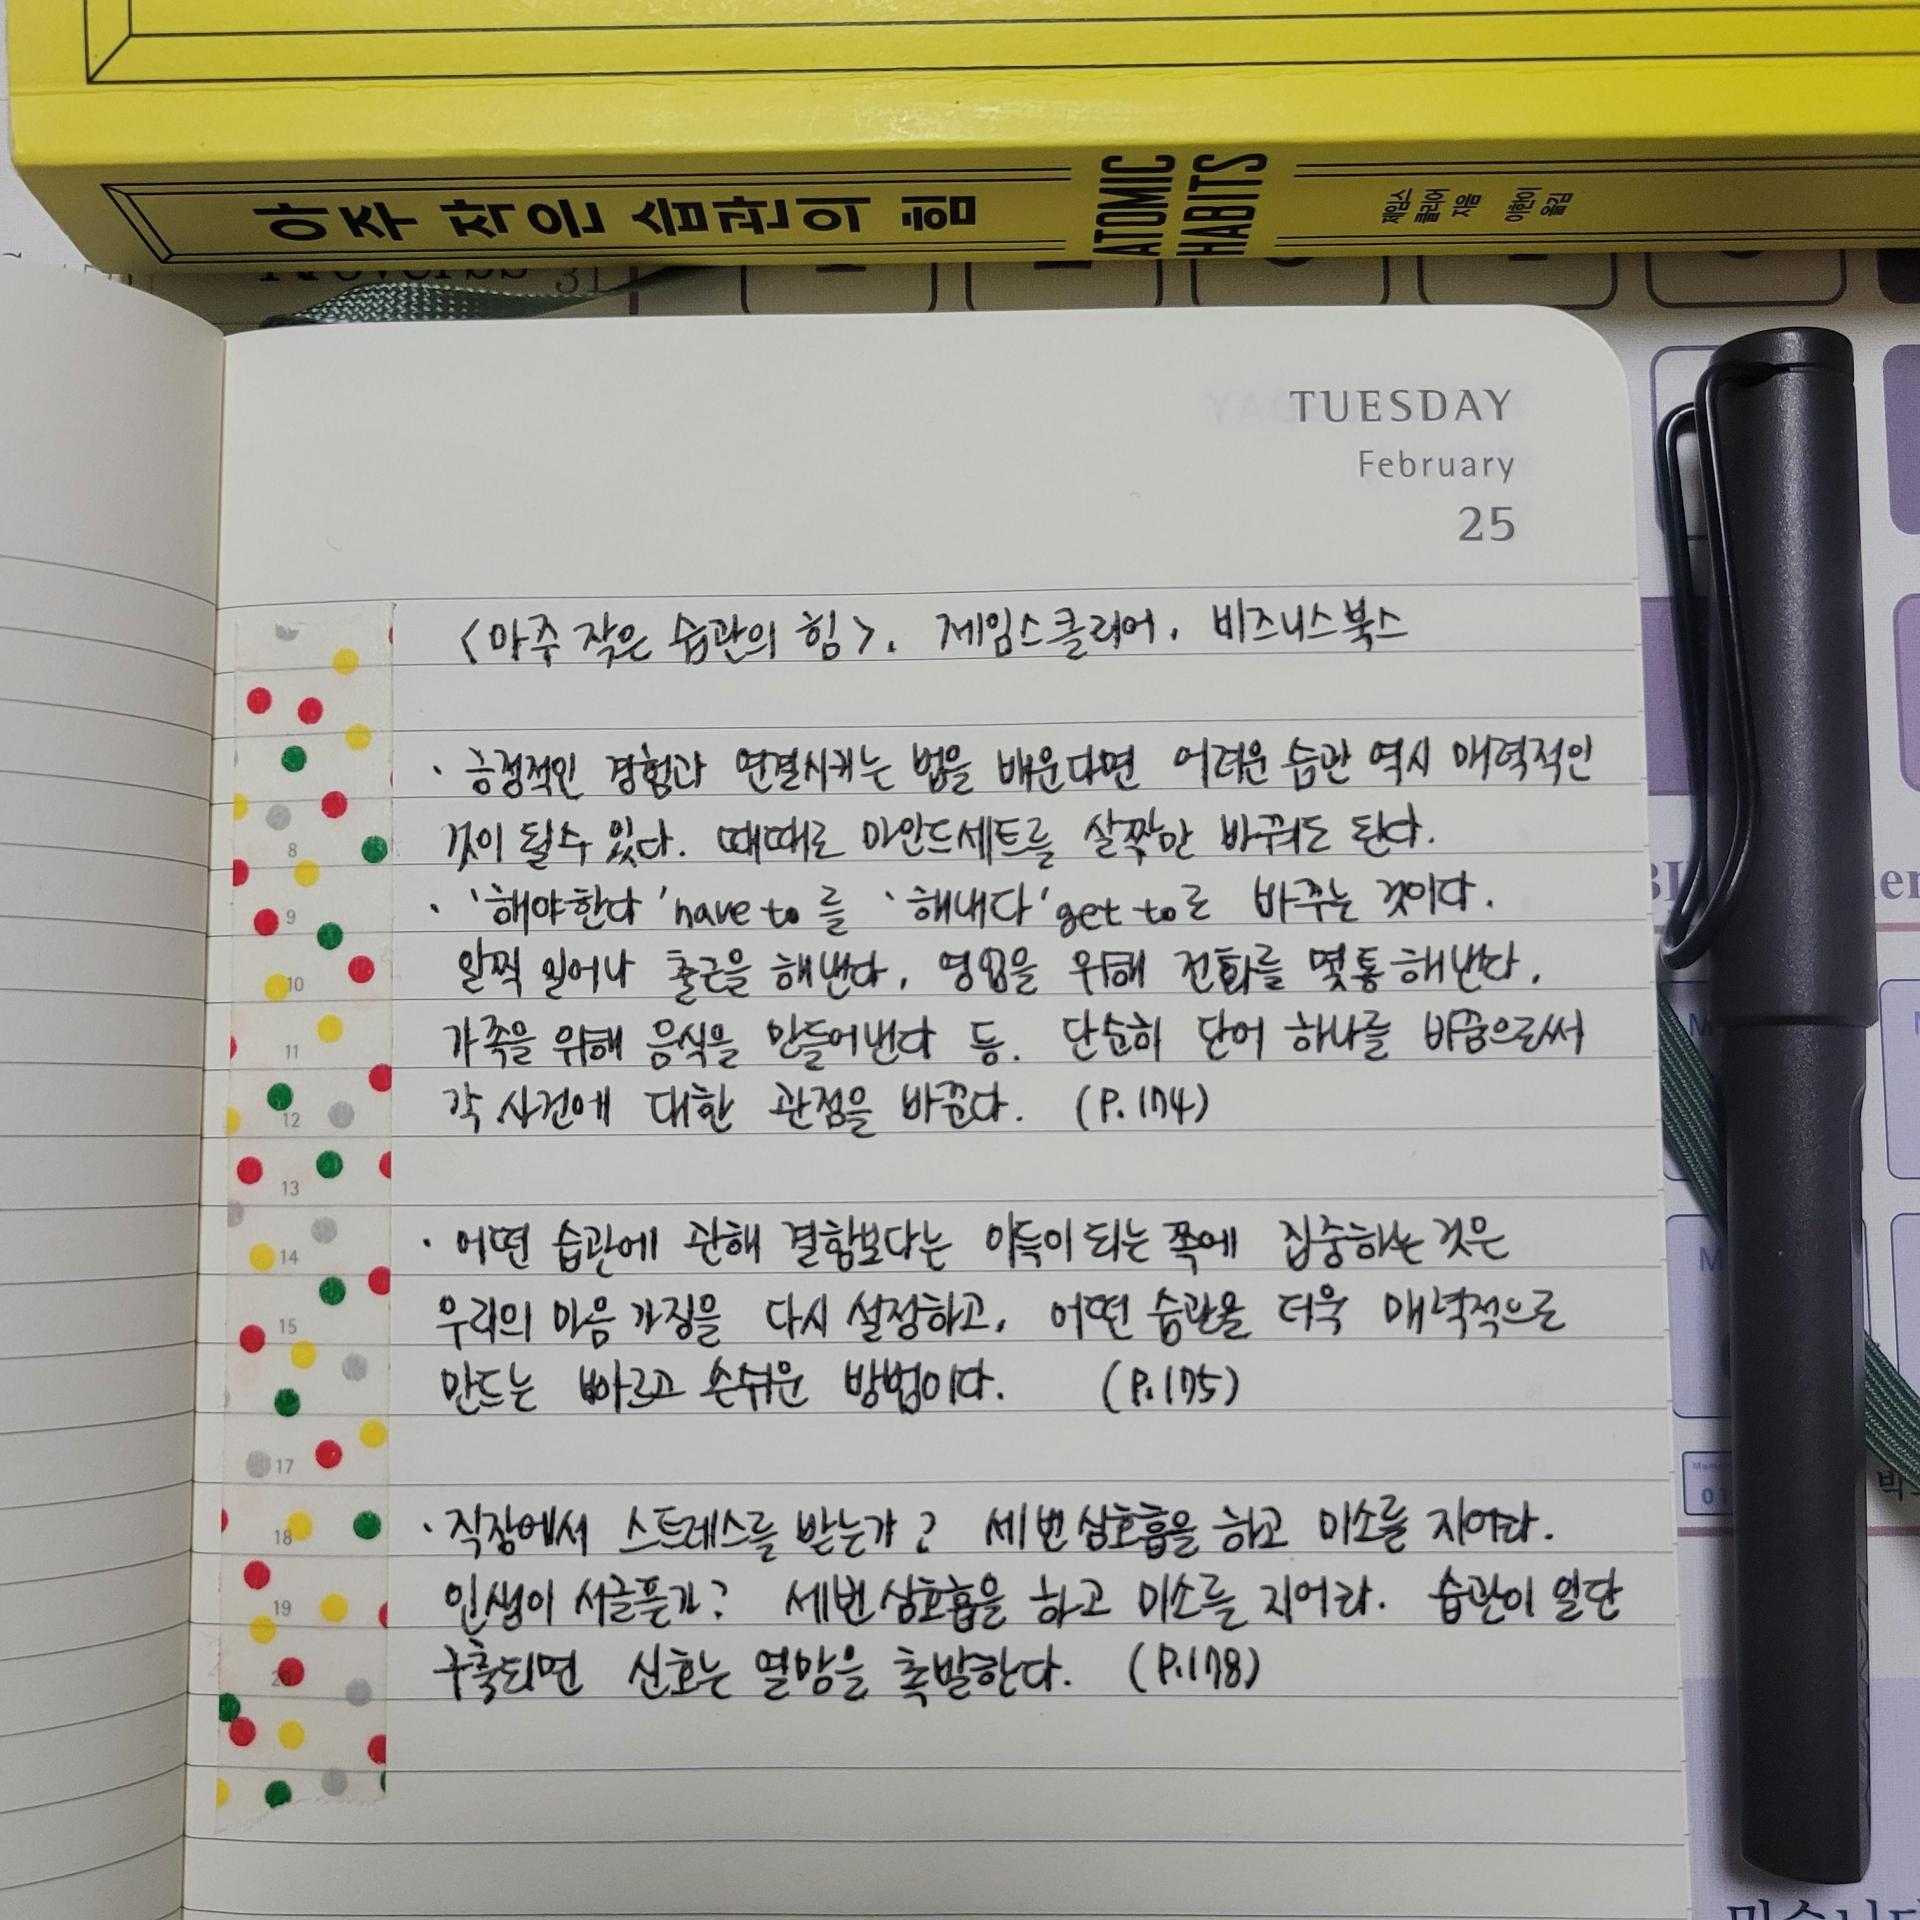 아주 작은 습관의 힘
ATOMIC
HABITS
제임스
클리어
지음
이한이
옮김
Proverbs 31
TUESDAY
February
25
<아주 작은 습관의 힘>, 제임스클리어, 비즈니스북스
· 긍정적인 경험과 연결시키는 법을 배운다면 어려운 습관 역시 매력적인
것이 될수 있다. 때때로 마인드세트를 살짝만 바꿔도 된다.
· '해야한다' have to 를 '해내다' get to로 바꾸는 것이다.
일찍 일어나 출근을 해낸다, 영업을 위해 전화를 몇통 해낸다,
가족을 위해 음식을 만들어낸다 등. 단순히 단어 하나를 바꿈으로써
각 사건에 대한 관점을 바꾼다. (P.174)
· 어떤 습관에 관해 결함보다는 이득이 되는 쪽에 집중하는 것은
우리의 마음 가짐을 다시 설정하고, 어떤 습관을 더욱 매력적으로
만드는 빠르고 손쉬운 방법이다. (P.175)
· 직장에서 스트레스를 받는가? 세번 심호흡을 하고 미소를 지어라.
인생이 서글픈가? 세번 심호흡을 하고 미소를 지어라. 습관이 일단
구축되면 신호는 열망을 촉발한다. (P.178)
8
9
10
11
12
13
14
15
17
18
19
20